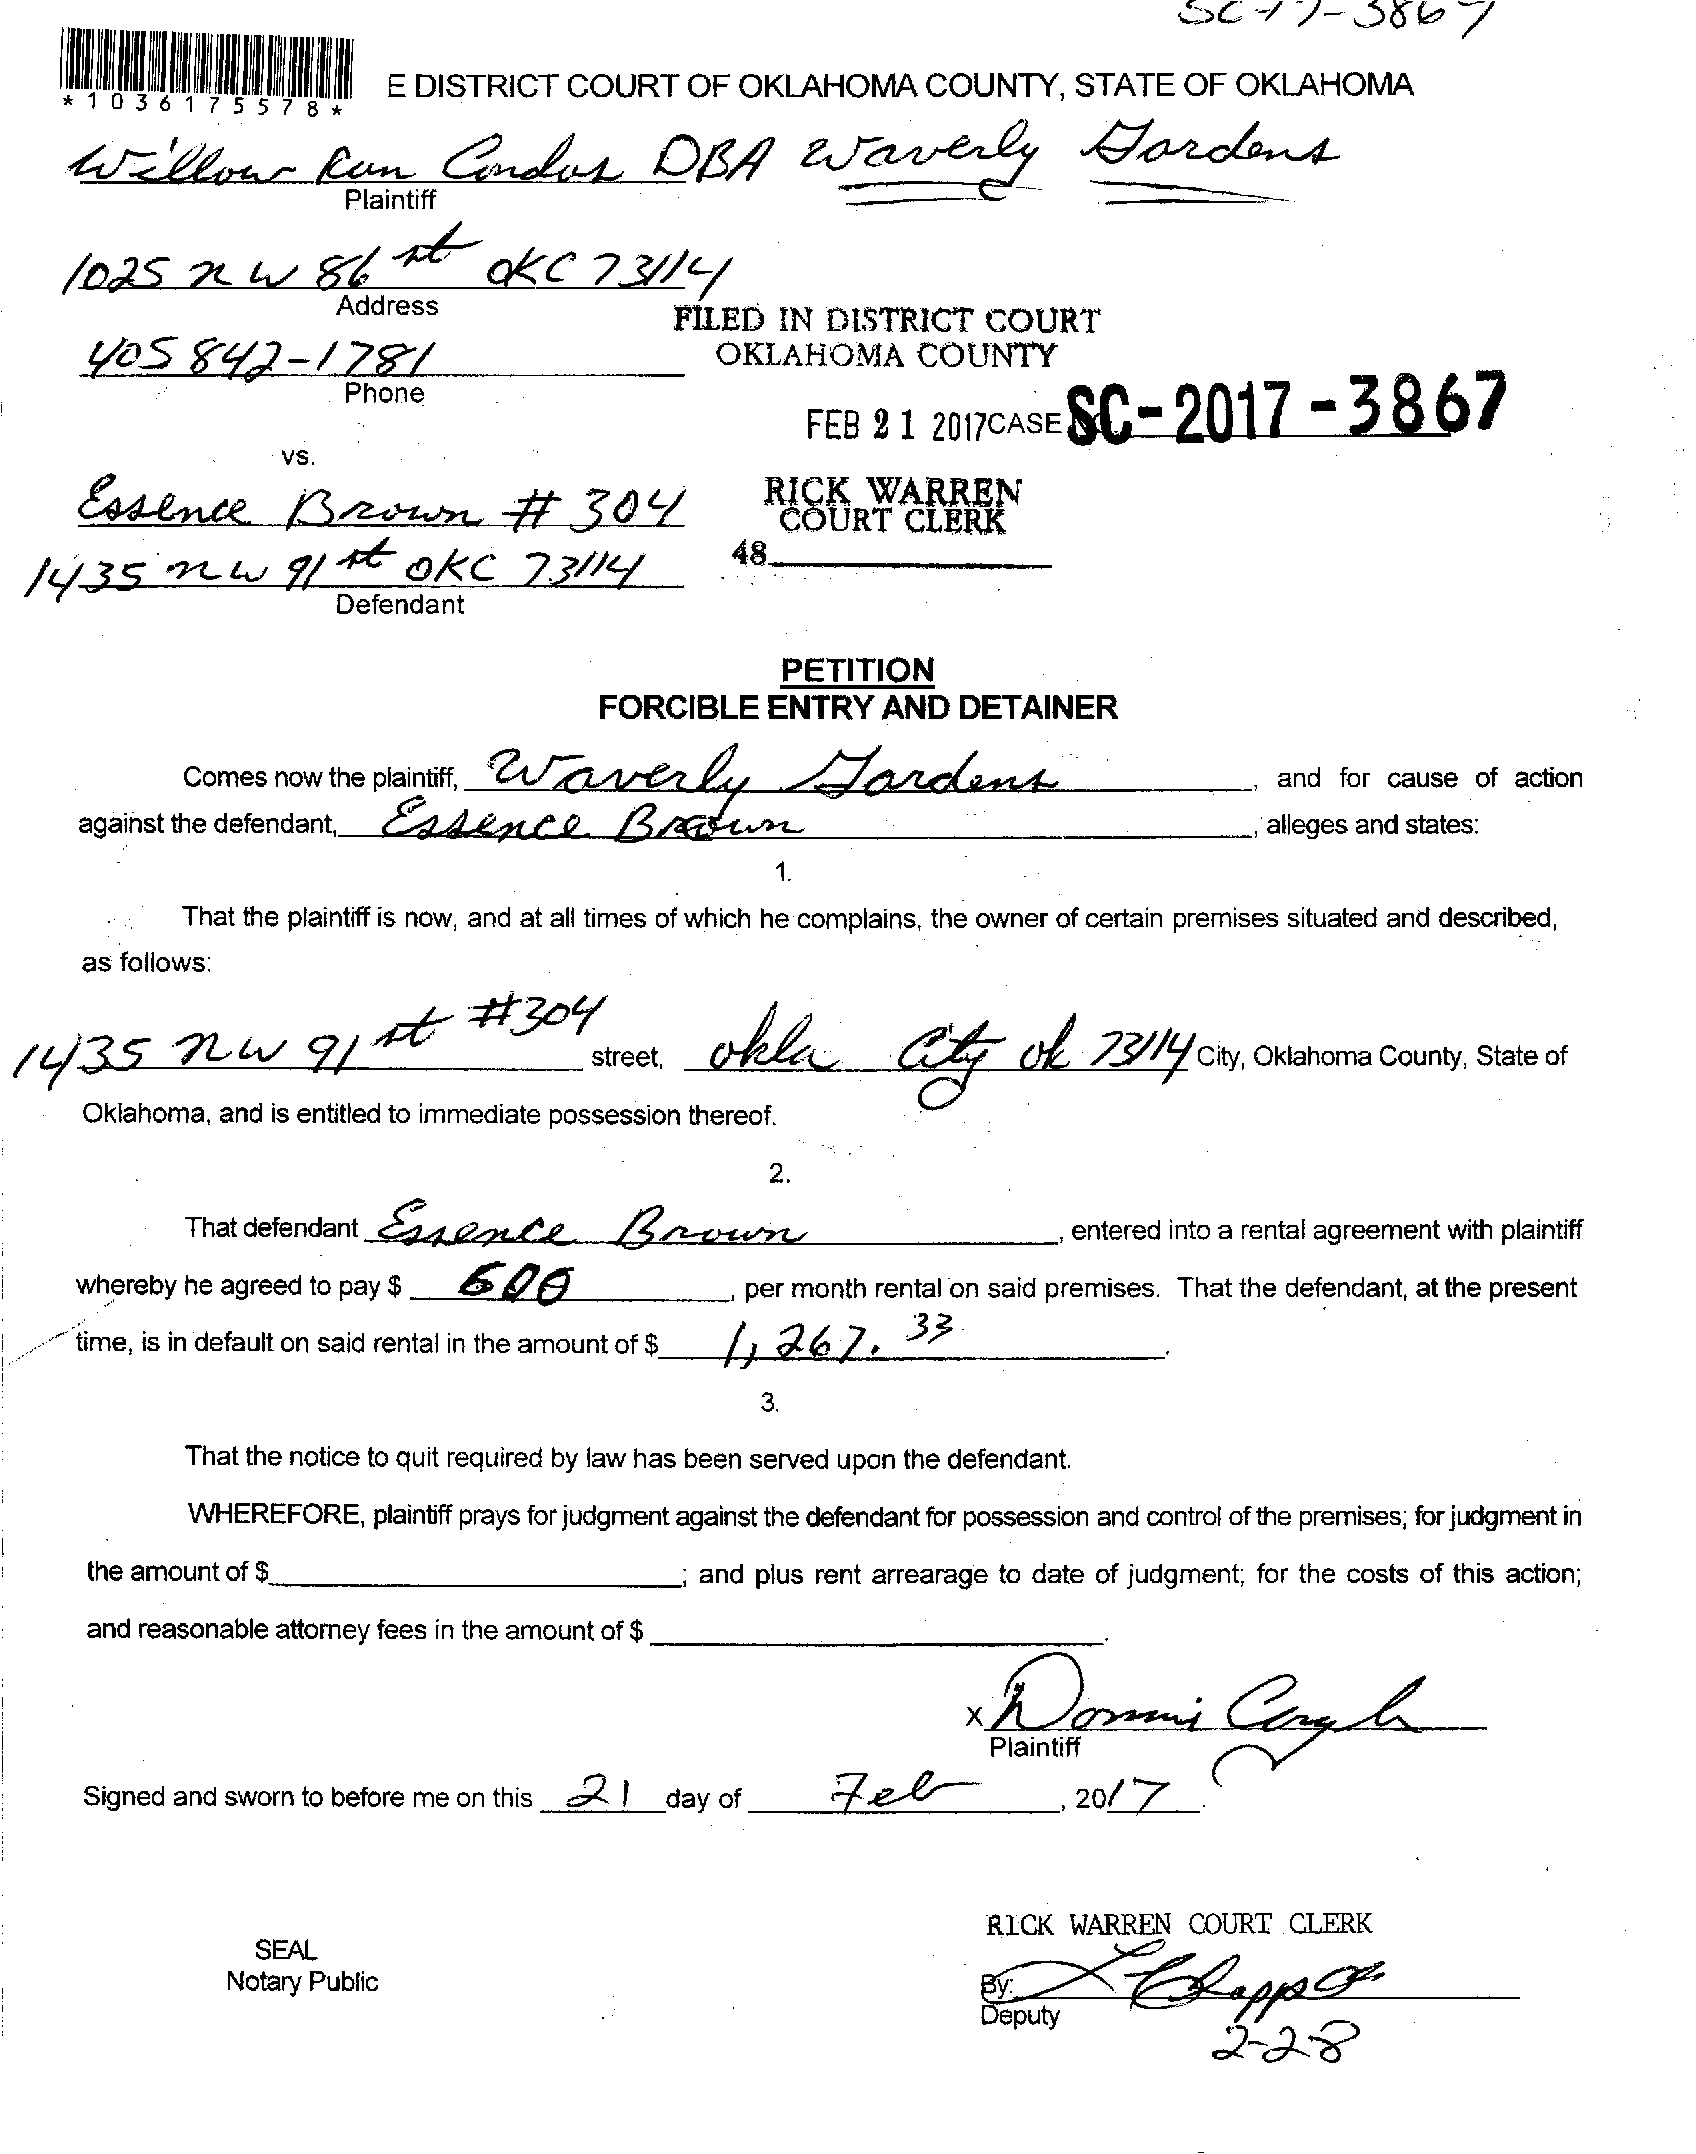 SC-17-3867
*1036175578*
E DISTRICT COURT OF OKLAHOMA COUNTY, STATE OF OKLAHOMA
Willow Run Condos DBA Waverly Gardens
Plaintiff
1025 NW 86 st OKC 73114
Address
FILED IN DISTRICT COURT
OKLAHOMA COUNTY
405 842-1781
Phone
FEB 21 2017 CASE SC-2017-3867
vs.
Essence Brown # 304
RICK WARREN
COURT CLERK
1435 NW 91 st OKC 73114
48
Defendant
PETITION
FORCIBLE ENTRY AND DETAINER
Comes now the plaintiff, Waverly Gardens, and for cause of action
against the defendant, Essence Brown, alleges and states:
1.
That the plaintiff is now, and at all times of which he complains, the owner of certain premises situated and described,
as follows:
1435 NW 91 st #304 street, Okla City ok 73114 City, Oklahoma County, State of
Oklahoma, and is entitled to immediate possession thereof.
2.
That defendant Essence Brown, entered into a rental agreement with plaintiff
whereby he agreed to pay $ 600, per month rental on said premises. That the defendant, at the present
time, is in default on said rental in the amount of $ 1,267.33.
3.
That the notice to quit required by law has been served upon the defendant.
WHEREFORE, plaintiff prays for judgment against the defendant for possession and control of the premises; for judgment in
the amount of $ ; and plus rent arrearage to date of judgment; for the costs of this action;
and reasonable attorney fees in the amount of $ .
X
Plaintiff
Signed and sworn to before me on this 21 day of Feb, 2017.
RICK WARREN COURT CLERK
SEAL
Notary Public
By:
Deputy
2-28